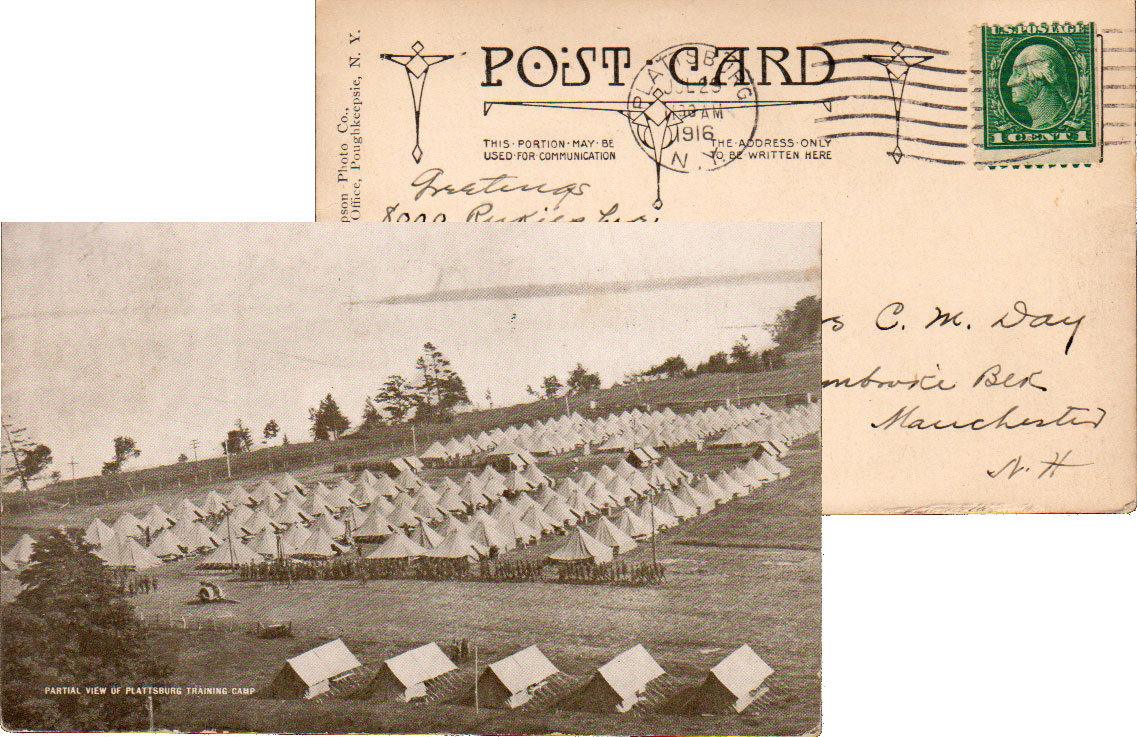 pson Photo Co.,
Office, Poughkeepsie, N. Y.
POST · CARD
THIS · PORTION · MAY · BE
USED · FOR · COMMUNICATION
THE · ADDRESS · ONLY
TO · BE · WRITTEN HERE
PLATTSBURG
JUL 29
30 AM
1916
N.Y.
U.S. POSTAGE
1 CENT 1
Greetings
s C. M. Day
mbroke Blk
Manchester
N. H
PARTIAL VIEW OF PLATTSBURG TRAINING CAMP